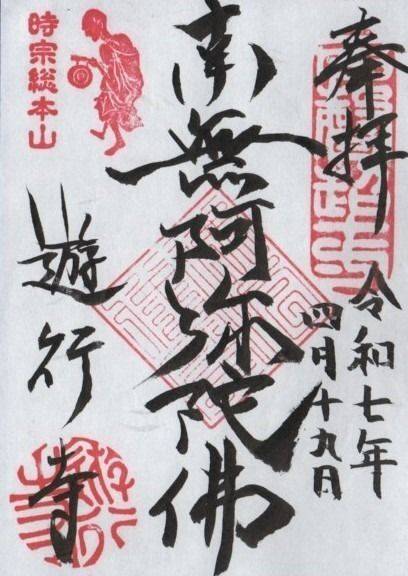 奉拝
令和七年
四月十九日
南無阿弥陀佛
時宗総本山
遊行寺